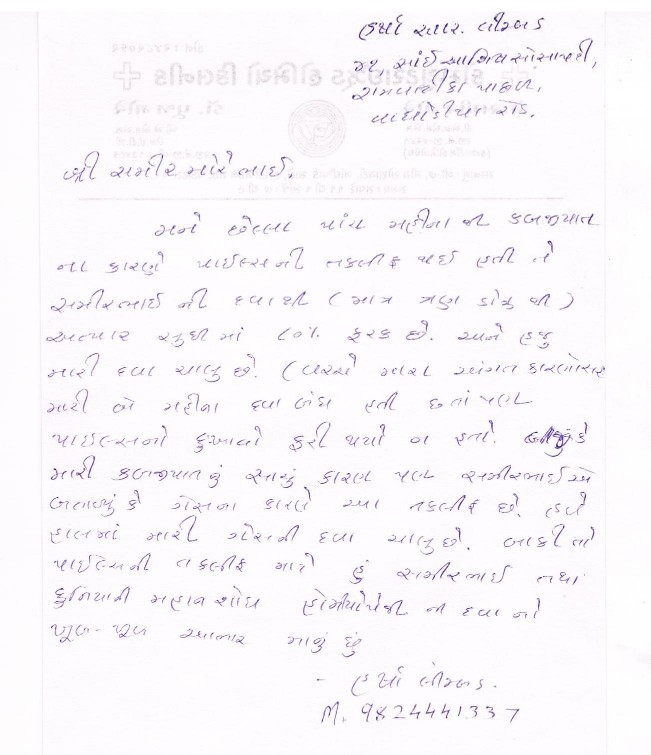 હર્ષા આર. લીમ્બડ
મર, સાંઈ આશિષ સોસાયટી,
રામવાટીકા પાછળ,
વાઘોડીયા રોડ.
શ્રી સમીર મોરે ભાઈ,
મને છેલ્લા પાંચ મહીના થી કબજીયાત
ના કારણે પાઈલ્સની તકલીફ થઈ હતી તે
સમીરભાઈ ની દવાથી ( માત્ર ત્રણ ડોઝ થી )
અત્યાર સુધીમાં ૮૦% ફરક છે. અને હજુ
મારી દવા ચાલુ છે. (વચ્ચે મારા અંગત કારણોસર
મારી બે મહીના દવા બંધ હતી છતાં પણ
પાઈલ્સનો દુખાવો ફરી થયો ન હતો. બીજું કે
મારી કબજીયાતનું સાચું કારણ પણ સમીરભાઈએ
બતાવ્યું કે ગેસના કારણે આ તકલીફ છે. હવે
હાલમાં મારી ગેસની દવા ચાલુ છે. બાકી તો
પાઈલ્સની તકલીફ માટે હું સમીરભાઈ તથા
દુનિયાની મહાન શોધ હોમીયોપેથી ની દવા નો
ખૂબ-ખૂબ આભાર માનું છું
- હર્ષા લીમ્બડ.
M. 9824441337